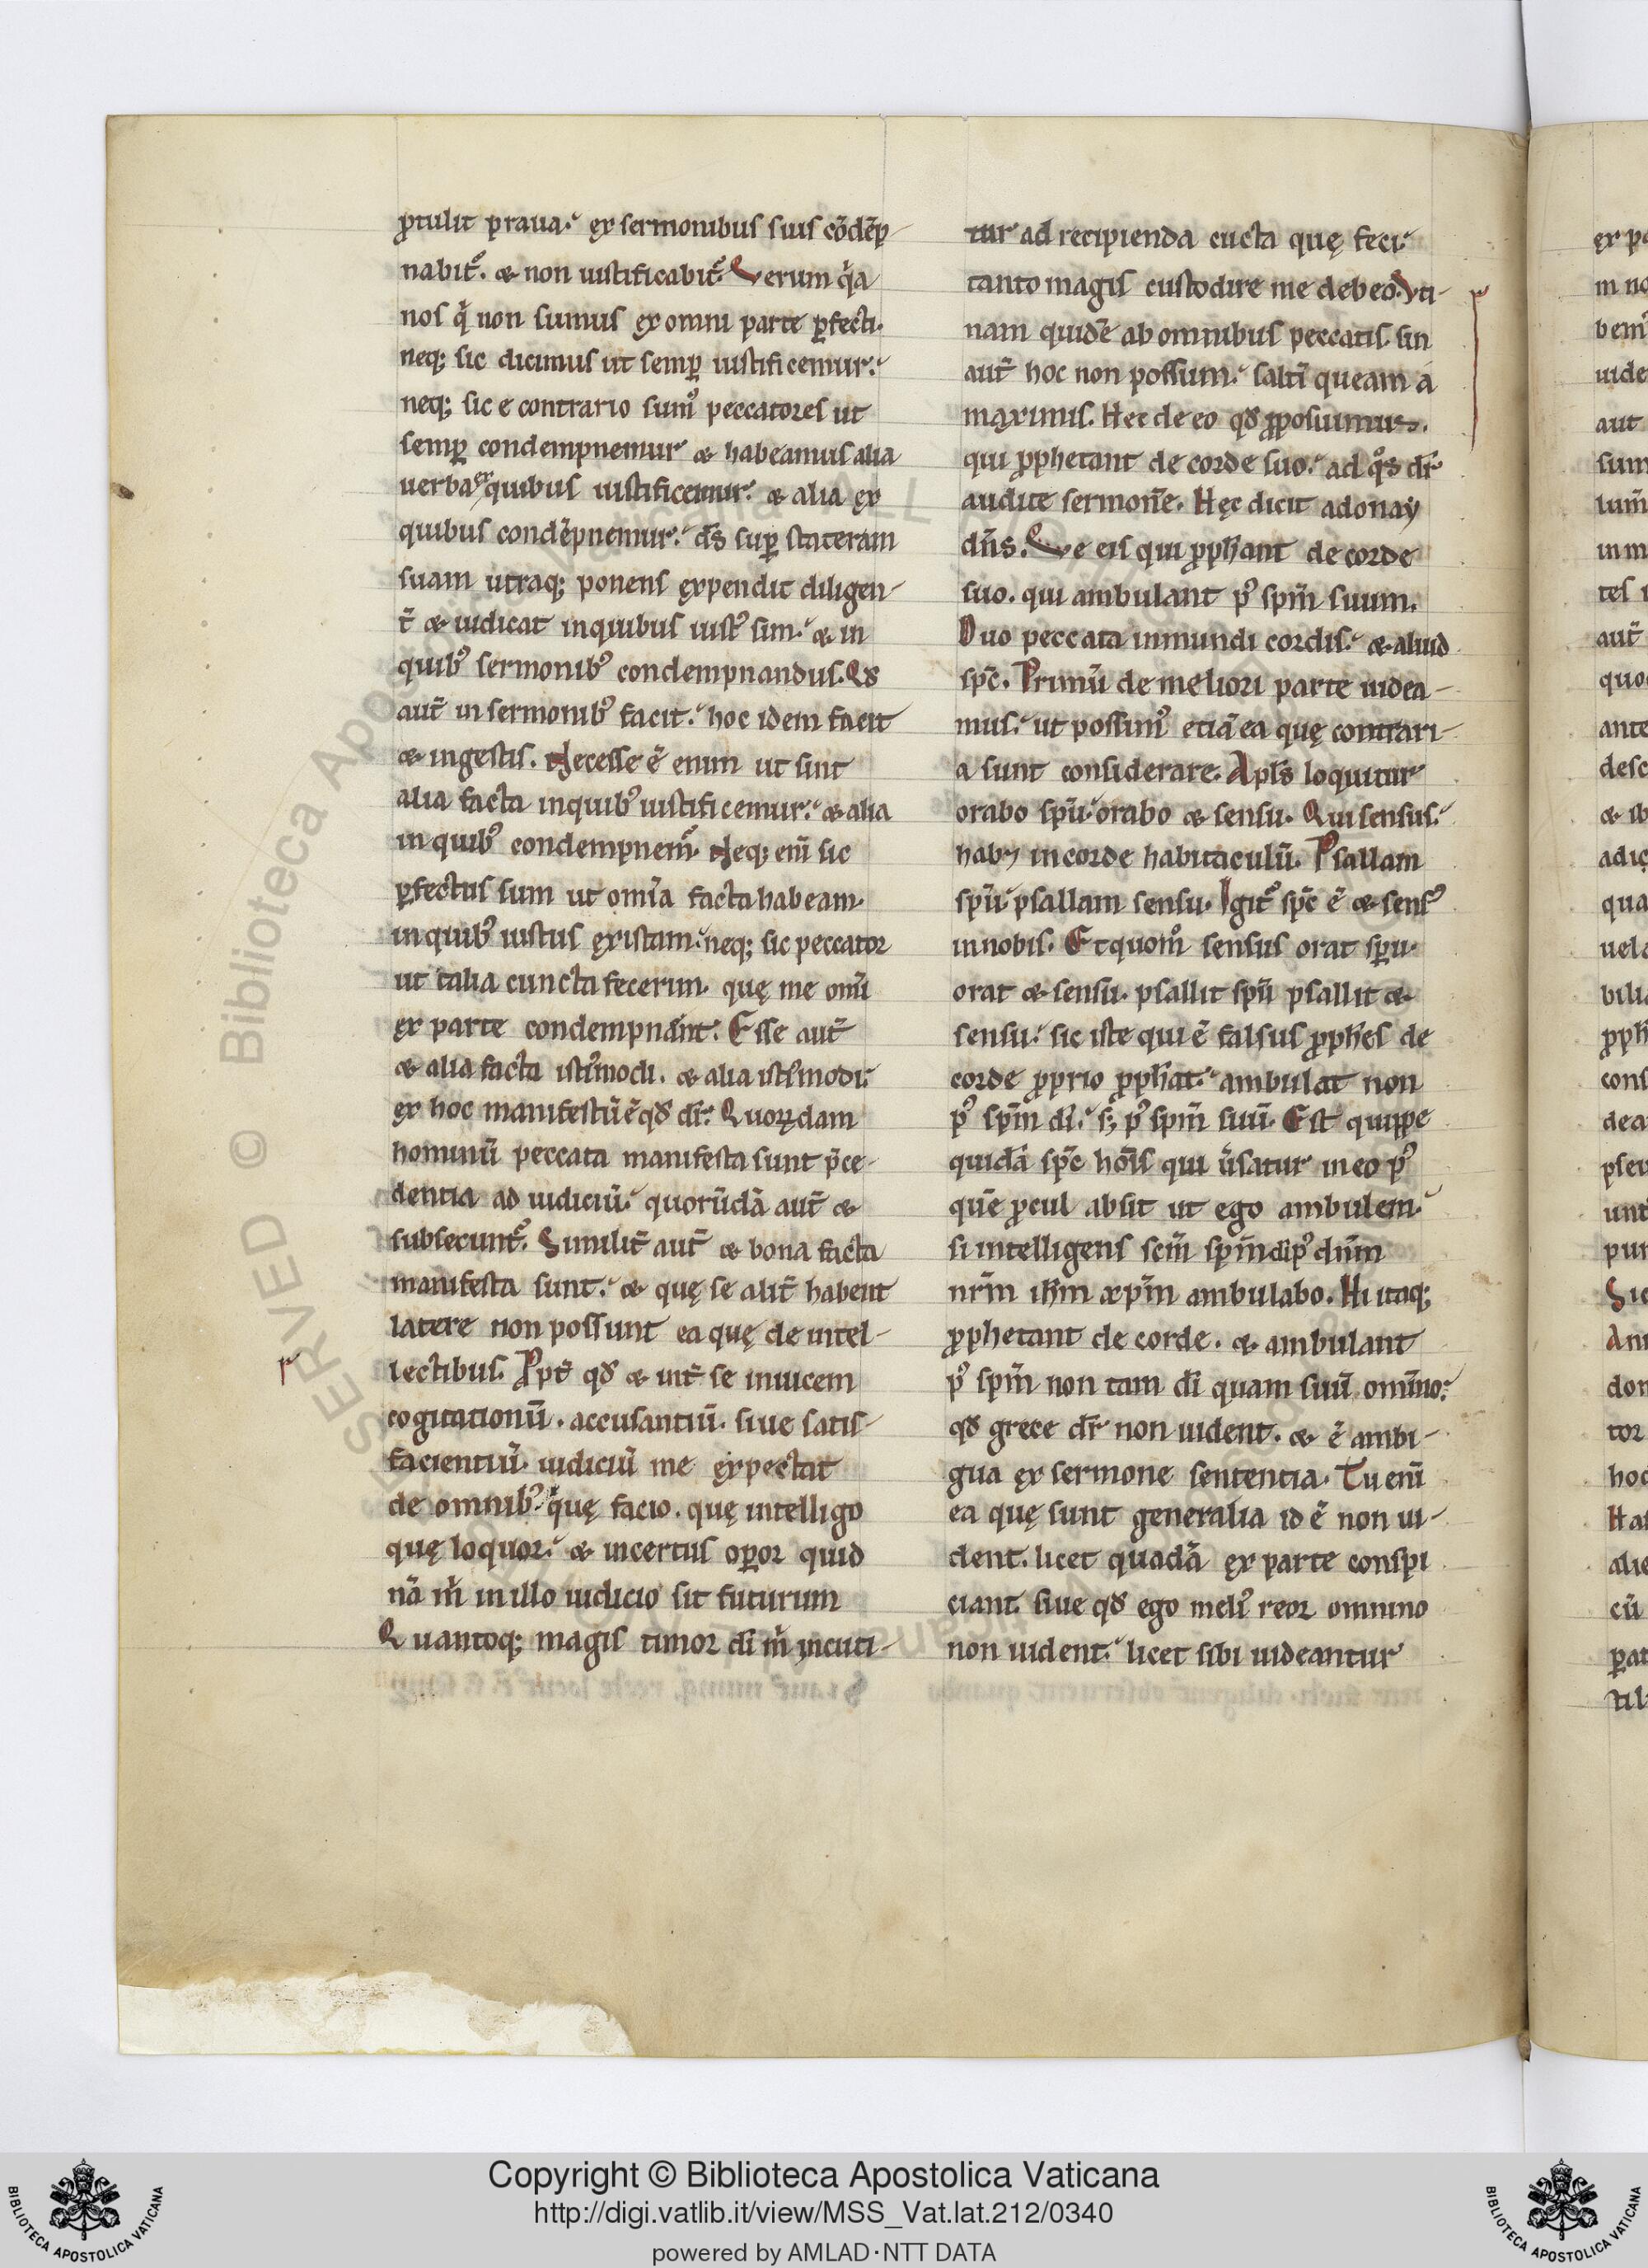 ꝓtulit praua. ex sermonibus suis cōdēp-
nabit᷑. & non iustificabit᷑. Verum q̇a
nos q̇ non sumus ex omni parte ꝑfecti.
neq; sic dicimus ut semꝑ iustificemur.
neq; sic e contrario sumꝰ peccatores ut
semꝑ condempnemur & habeamus alia
uerba ex quibus iustificemur. & alia ex
quibus condēpnemur. d̄s suꝑ stateram
suam utraq; ponens expendit diligen-
t̄ & iudicat inquibus iustꝰ sim. & in
quibꝰ sermonibꝰ condempnandus. Qď
aut̄ in sermonibꝰ facit. hoc idem facit
& ingestis. Necesse ē enim ut sint
alia facta inquibꝰ iustificemur. & alia
in quibꝰ condempnem᷑. Neq; enī sic
ꝑfectus sum ut om̄ia facta habeam.
inquibꝰ iustus existam. neq; sic peccator
ut talia cuncta fecerim. quę me om̄i
ex parte condempnant. Esse aut̄
& alia facta istiꝰmodi. & alia istiꝰmodi.
ex hoc manifestū ē qď dr̄. Quoꝝdam
hominū peccata manifesta sunt p̄ce-
dentia ad iudiciū. quorūdā aut̄ &
subsecunt᷑. Similit̄ aut̄ & bona facta
manifesta sunt. & quę se alit̄ habent
latere non possunt ea quę de intel-
lectibus. Ꝓpt̄ qď & int̄ se inuicem
cogitationū. accusantiū. siue satis-
facientiū. iudiciū me expectat
de omnibꝰ. quę facio. quę intelligo
quę loquor. & incertus oꝑor quid
nā ṁ in illo iudicio sit futurum
Quantoq; magis timor dī ṁ incuti-
tur ad recipienda cūcta quę feci.
tanto magis custodire me debeo. Vti-
nam quidē ab omnibus peccatis. sin
aut̄ hoc non possum. saltī queam a
maximis. Hec de eo qď ꝓposuimus.
qui ꝓphetant de corde suo. ad q̊s dr̄
audite sermonē. Hęc dicit adonay
dn̄s. Ve eis qui ꝓph̄ant de corde
suo. qui ambulant pꝰ sp̄m suum.
Duo peccata inmundi cordis. & aliud
sp̄c. Primū de meliori parte uidea-
mus. ut possimꝰ etiā ea quę contrari-
a sunt considerare. Apl̄s loquitur
orabo spū. orabo & sensu. Qui sensus.
hab; incorde habitaculū. Psallam
spū psallam sensu. Igit᷑ sp̄c ē & sensꝰ
innobis. Et quom̊ sensus orat spū.
orat & sensu. psallit spū psallit &
sensu. sic iste qui ē falsus ꝓph̄es de
corde ꝓprio ꝓph̄at. ambulat non
pꝰ sp̄m dī. s; pꝰ sp̄m suū. Est quippe
quidā sp̄c hōīs qui ūsatur in eo pꝰ
quē ꝓcul absit ut ego ambulem.
si intelligens sc̄m sp̄m dī pꝰ dn̄m
nr̄m ih̄m xp̄m ambulabo. Hi itaq;
ꝓphetant de corde. & ambulant
pꝰ sp̄m non tam dī quam suū. om̄ino.
qď grece dr̄ non uident. & ē ambi-
gua ex sermone sententia. Tu enī
ea quę sunt generalia id ē non ui-
dent. licet quadā ex parte conspi
ciant. siue qď ego meliꝰ reor omnino
non uident. licet sibi uideantur
Copyright © Biblioteca Apostolica Vaticana
http://digi.vatlib.it/view/MSS_Vat.lat.212/0340
powered by AMLAD·NTT DATA
BIBLIOTECA APOSTOLICA VATICANA
BIBLIOTECA APOSTOLICA VATICANA